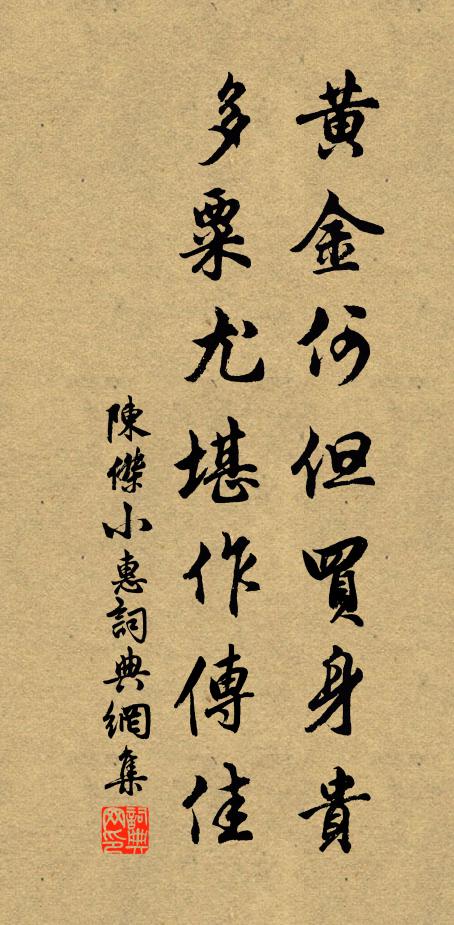 黃金何但買身貴
多粟尤堪作傳佳
陳傑小惠詞典網集
詞典网印